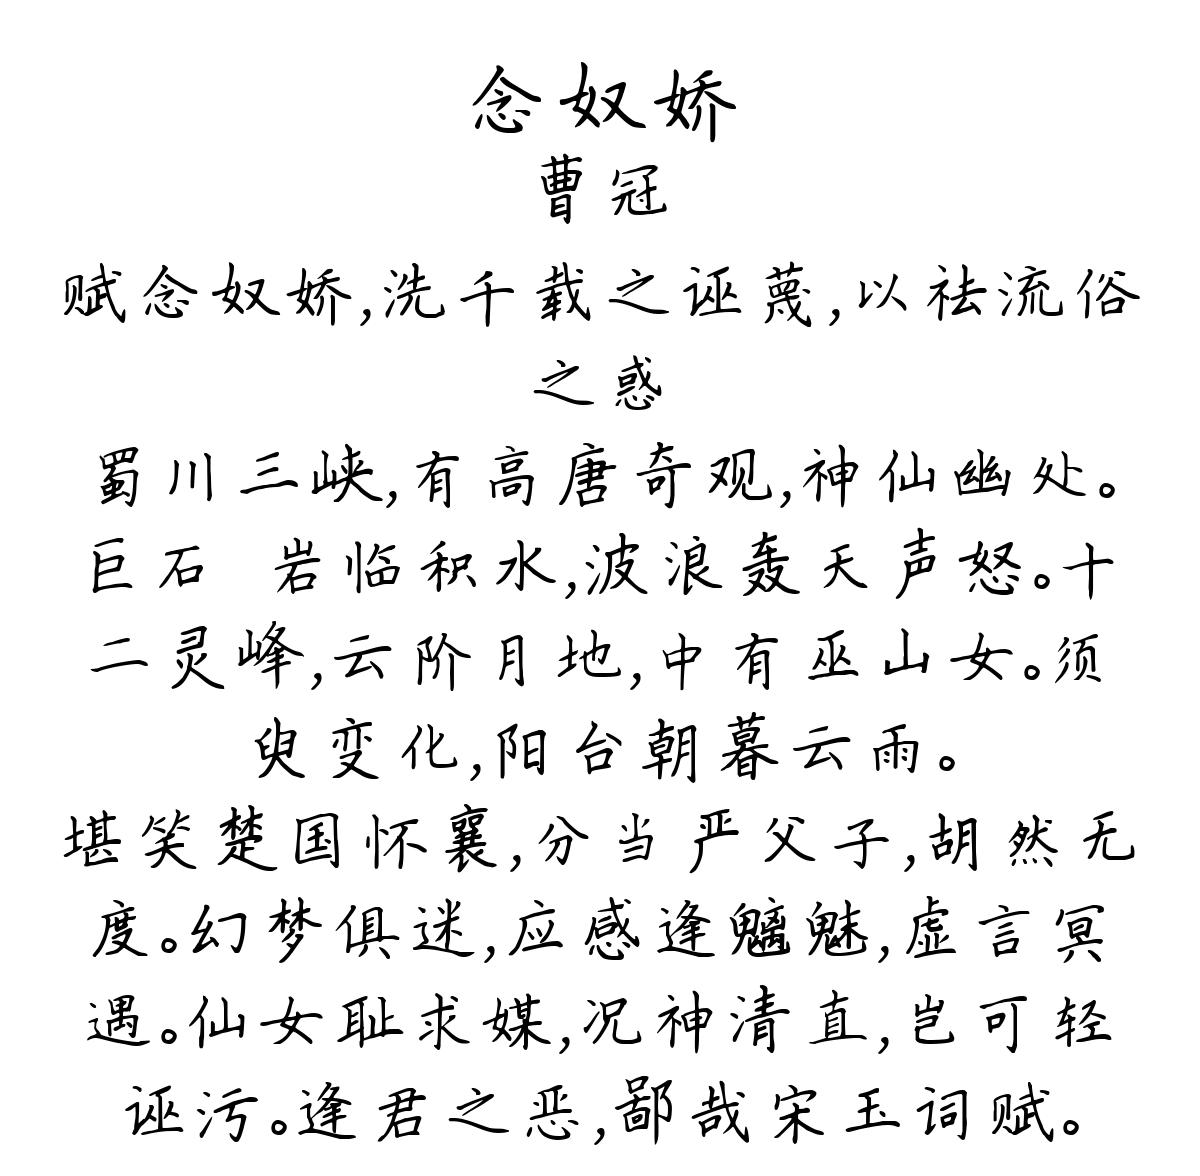 念奴娇
曹冠
赋念奴娇,洗千载之诬蔑,以祛流俗
之惑
蜀川三峡,有高唐奇观,神仙幽处。
巨石 岩临积水,波浪轰天声怒。十
二灵峰,云阶月地,中有巫山女。须
臾变化,阳台朝暮云雨。
堪笑楚国怀襄,分当严父子,胡然无
度。幻梦俱迷,应感逢魑魅,虚言冥
遇。仙女耻求媒,况神清直,岂可轻
诬污。逢君之恶,鄙哉宋玉词赋。